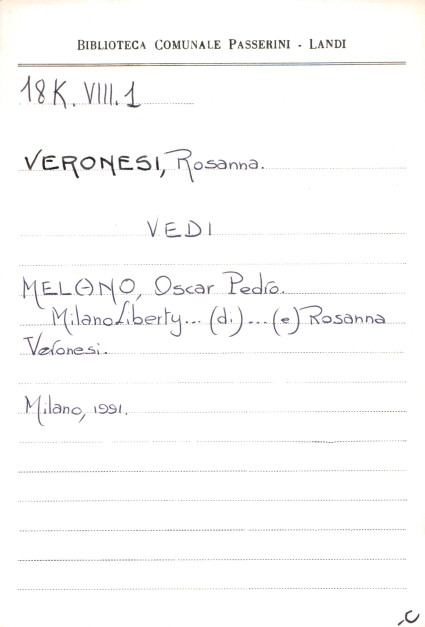 BIBLIOTECA COMUNALE PASSERINI - LANDI
18K. VIII. 1
VERONESI, Rosanna.
VEDI
MELANO, Oscar Pedro.
Milano Liberty... (di)... (e) Rosanna
Veronesi.
Milano, 1991.